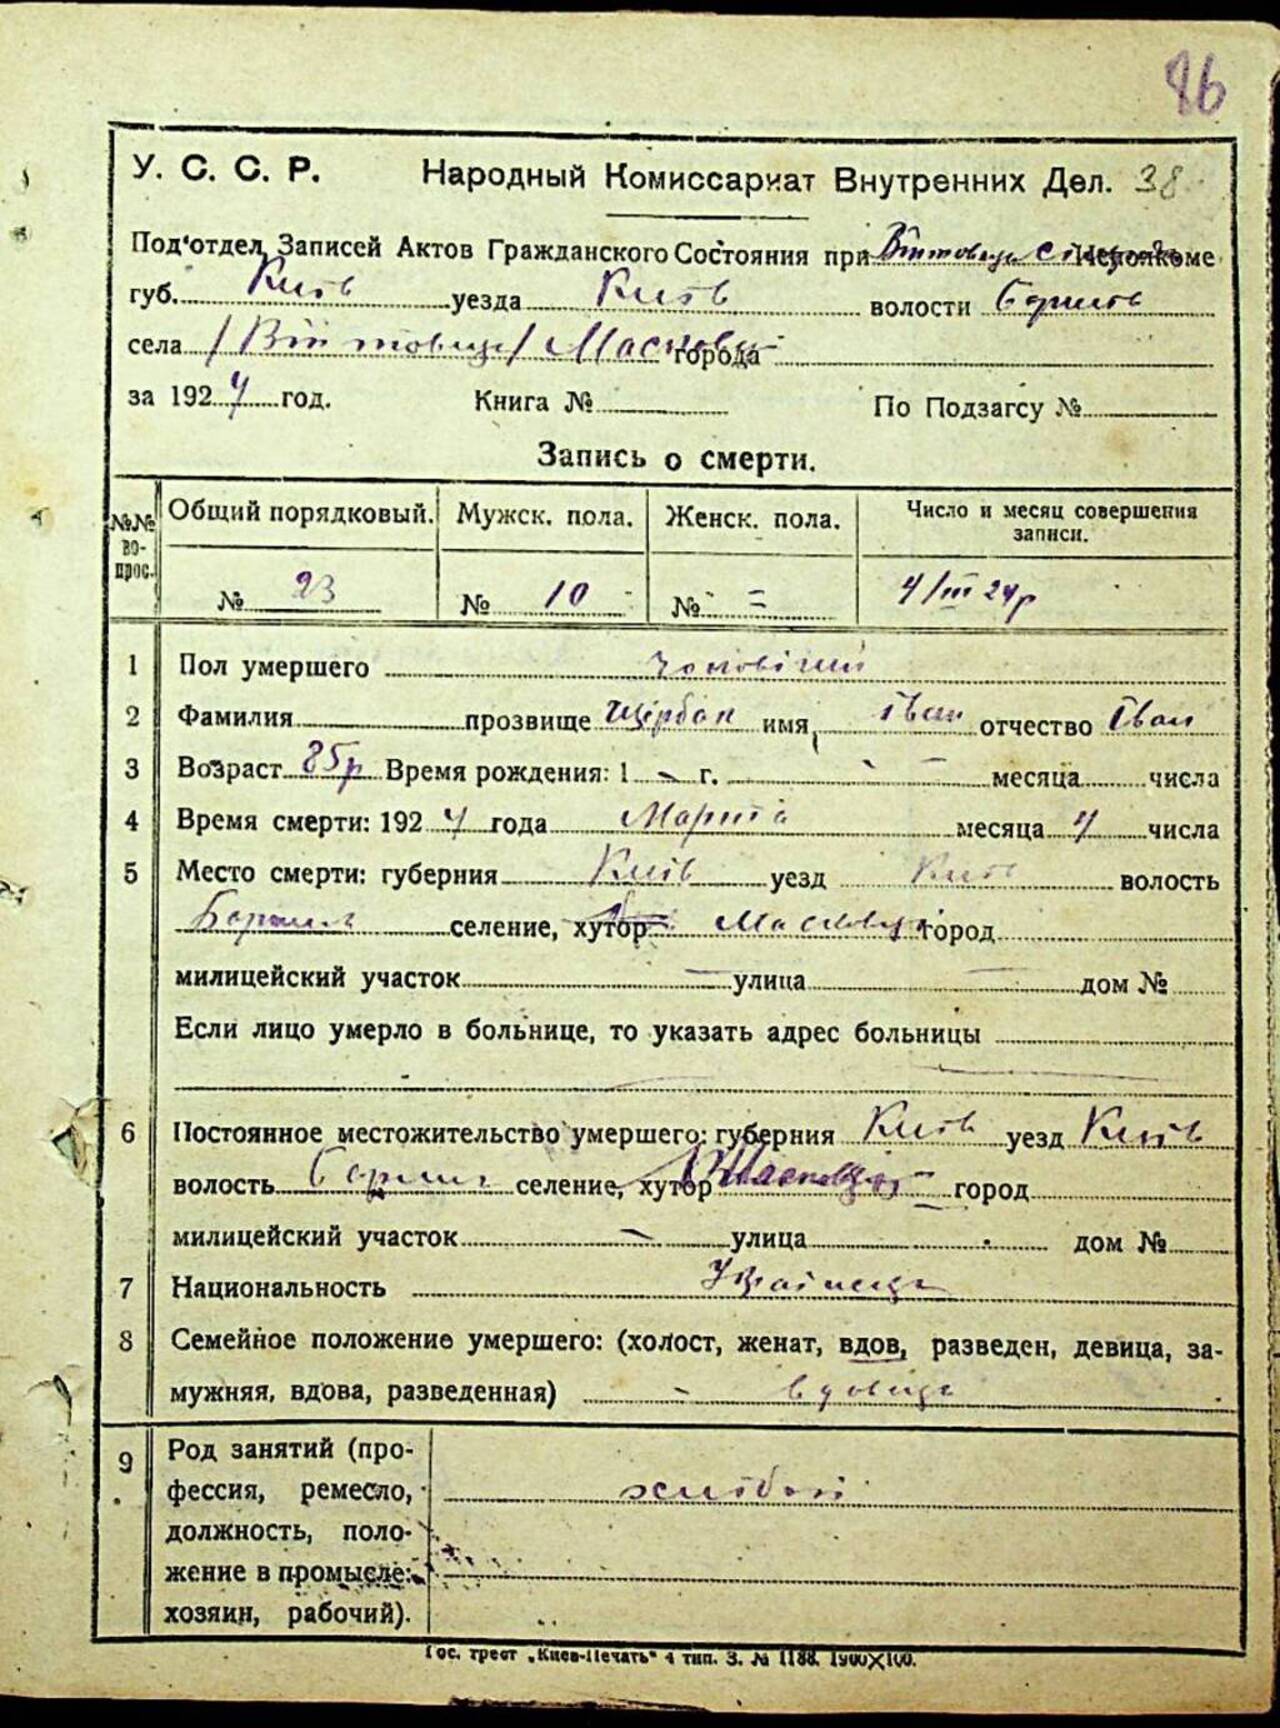 86
У. С. С. Р. Народный Комиссариат Внутренних Дел. 38
Под'отдел Записей Актов Гражданского Состояния при Исполкоме
губ. Київ уезда Київ волости
села города
за 1924 год. Книга № По Подзагсу №
Запись о смерти.
№№ вопрос. Общий порядковый. Мужск. пола. Женск. пола. Число и месяц совершения записи.
№ 23 № 10 № = 4/III 24р
1 Пол умершего чоловічий
2 Фамилия прозвище Щербак имя Іван отчество Іван
3 Возраст 85р Время рождения: 1 - г. - - месяца числа
4 Время смерти: 1924 года Марта месяца 4 числа
5 Место смерти: губерния Київ уезд Київ волость
селение, хутор город
милицейский участок — улица — дом №
Если лицо умерло в больнице, то указать адрес больницы
6 Постоянное местожительство умершего: губерния Київ уезд Київ
волость селение, хутор город
милицейский участок — улица дом №
7 Национальность
8 Семейное положение умершего: (холост, женат, вдов, разведен, девица, за-
мужняя, вдова, разведенная) - вдовець
9 Род занятий (про-
фессия, ремесло,
должность, поло-
жение в промысле:
хозяин, рабочий).
Гос. трест „Киев-Печать“ 4 тип. З. № 1188. 1900×100.